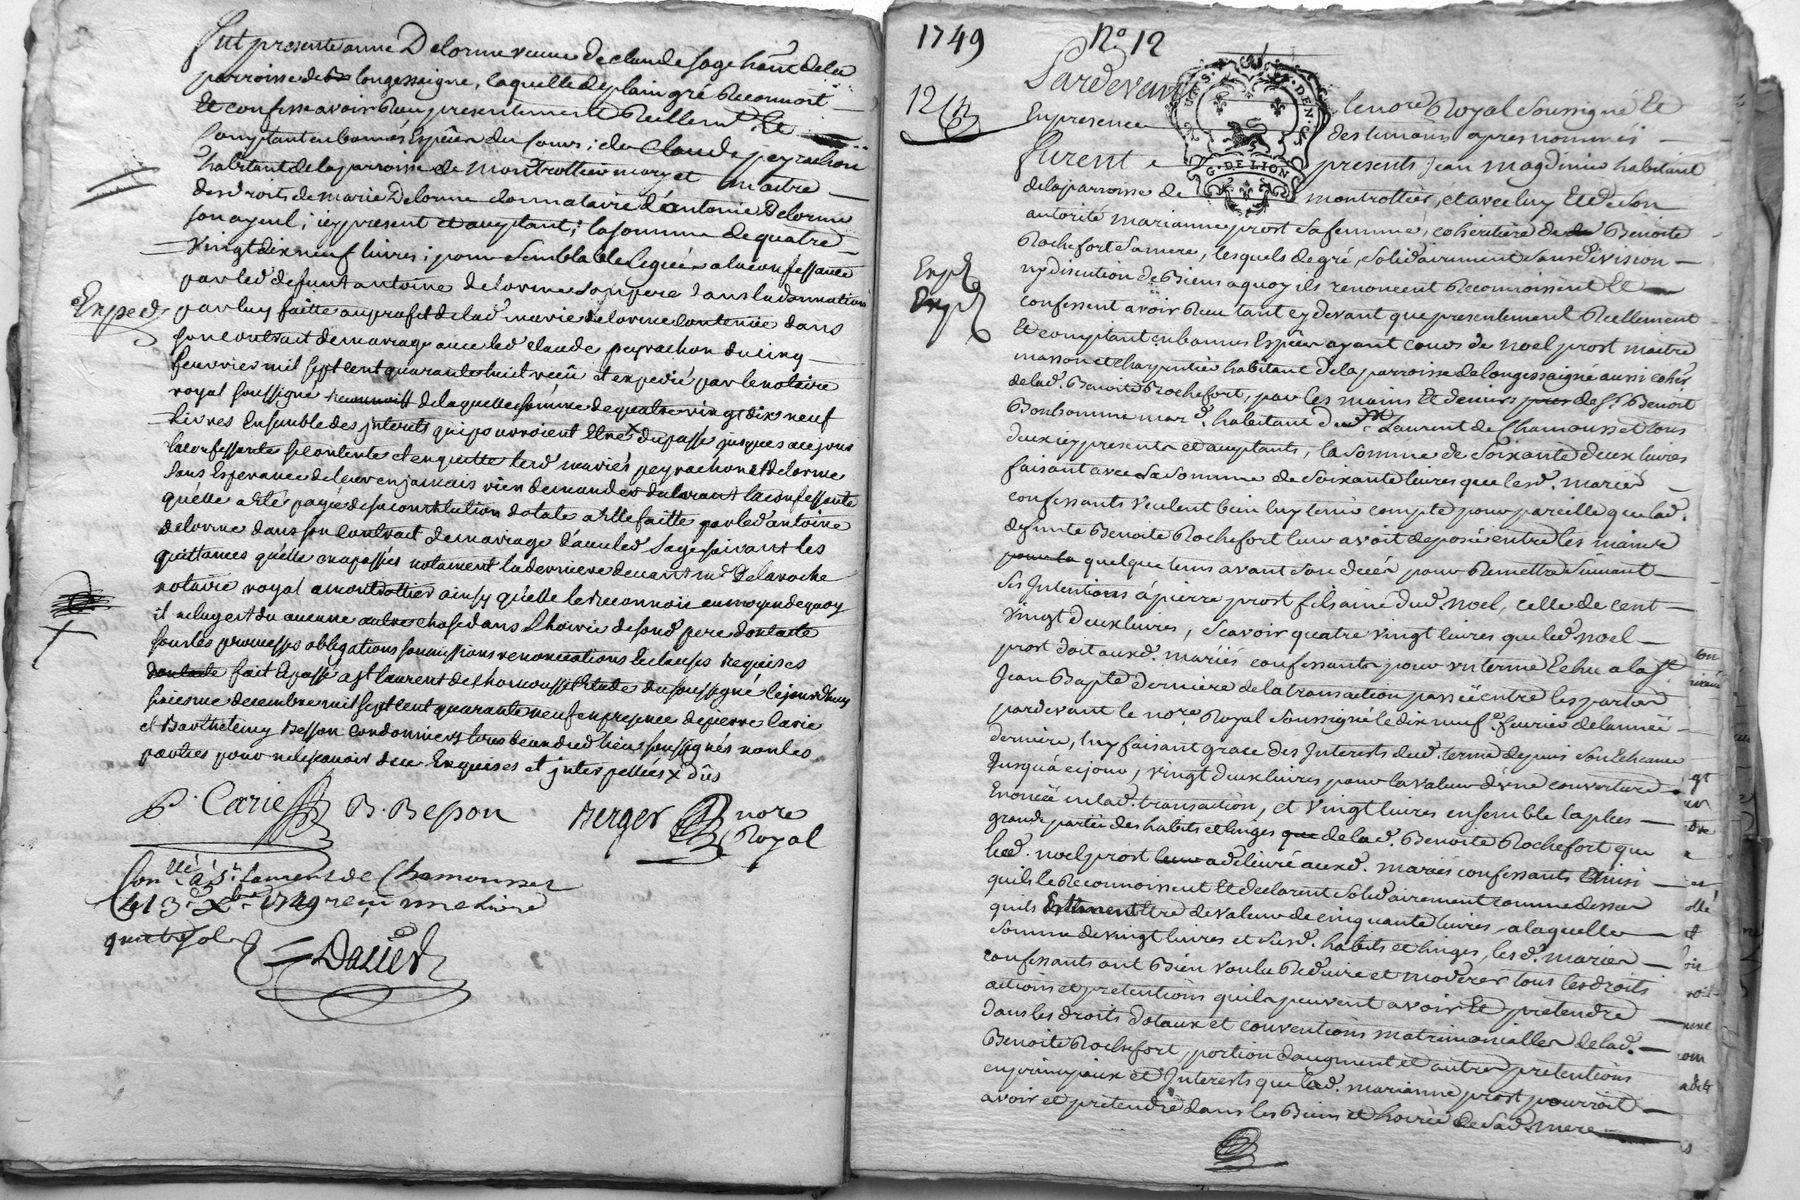 Fut presente anne Delorme veuve de claude sage hante de la
parroisse de longessaigne, laquelle de plain gré Reconnoit
Et confesse avoir Reçu presentement Reellement Et
Comptant en bonnes Espèces du cours, de Claude peyrachon
habitant de la parroisse de montrottier mary et maitre
des droits de marie Delorme donnataire d'antoine Delorme
son ayeul, icy present et acceptant, la somme de quatre
vingt dix neuf livres, pour semblable leguée a la confessante
par led defunt antoine delorme son pere dans la donnation
Exped. par luy faitte au profit de lad marie delorme contenüe dans
son contrat de mariage avec led claude peyrachon du cinq
feuvrier mil sept cent quarante huit reçü et expedié par le notaire
royal soussigné de laquelle somme de quatre vingt dix neuf
Livres Ensemble des jnterets qui pourroient Etre dupassé jusques a ce jour
la confessante se contente et en quitte led mariés peyrachon et delorme
sans Esperance de leur en jamais rien demander declarant la confessante
qu'elle a eté payée de sa constitution dotale a Elle faitte par led antoine
delorme dans son contrat de mariage d'avec led sage suivant les
quittances qu'elle en a passées notament la derniere devant me Delaroche
notaire royal a montrottier ainsy qu'elle le reconnoit au moyen de quoy
il ne luy est du aucune autre chose dans l'hoirie de sond pere
sous les promesses obligations soumissions renonciations et clauses requises
fait et passé a st laurent de chamousset Etude du soussigné le jour d'huy
decembre mil sept cent quarante neuf en presence de pierre Carie
et Barthelemy Besson cordonniers dud lieu soussignés non les
parties pour ne le sçavoir de ce Enquises et jnterpellées x dûs
P. Carie B. Besson Berger nore
Royal
Con.llé à St. Laurent de Chamousset
le 13e Xbre 1749 reçu
Davied
1749 No 12
Pardevant le nore Royal Soussigné Et
12 En presence des temoins apres nommés
Furent presents Jean magdinier habitant
de la parroisse de montrottier, et avec luy Et de Son
autorité marianne prost sa femme, coheritiere de Benoite
Rochefort sa mere, lesquels de gré, solidairement sans division
Exp. ny discution de Biens a quoy ils renoncent Reconnoissent Et
Exp. confessent avoir Reçu tant cy devant que presentement Reellement
Et comptant en bonnes Espèces ayant cours de noel prost maitre
masson et charpentier habitant de la parroisse de longessaigne aussi coher.
de lad. Benoite Rochefort, par les mains Et deniers de sr. Benoit
Bonhomme mard. habitant dud. St. Laurent de Chamousset tous
deux icy presents et acceptants, la somme de soixante deux livres
faisant avec la somme de soixante livres que lesd. mariés
confessants veulent bien luy tenir compte pour pareille que lad.
defunte Benoite Rochefort leur avoit deposé entre les mains
quelque tems avant son decés pour Remettre suivant
ses Intentions à pierre prost fils ainé dud. noel, celle de cent
vingt deux livres, Scavoir quatre vingt livres que led. noel
prost doit auxd. mariés confessants pour un terme Echu a la st.
Jean Bapte derniere de la transaction passée entre les parties
pardevant le nore. Royal Soussigné le dix neufe. fevrier de l'année
derniere, luy faisant grace des Interests dud. terme depuis son Echeance
jusqu'à ce jour, vingt deux livres pour la valeur d'une couverture
Enoncée en lad. transaction, et vingt livres ensemble la plus
grande partie des habits et linges de lad. Benoite Rochefort que
led. noel prost a delivré auxd. mariés confessants Ainsi
qu'ils le Reconnoissent Et declarent solidairement comme dessus
quils Etre de valeur de cinquante livres, a laquelle
somme de vingt livres et susd. habits et linges, lesd. mariés
confessants ont Bien voulu Reduire et moderer tous les droits
actions et pretentions quils peuvent avoir Et pretendre
dans les droits dotaux et conventions matrimonialles de lad.
Benoite Rochefort, portion d'augment et autres pretentions
en principaux et Interests que lad. marianne prost pourroit
avoir et pretendre dans les Biens et hoirie de Sad. mere
G. DE LION